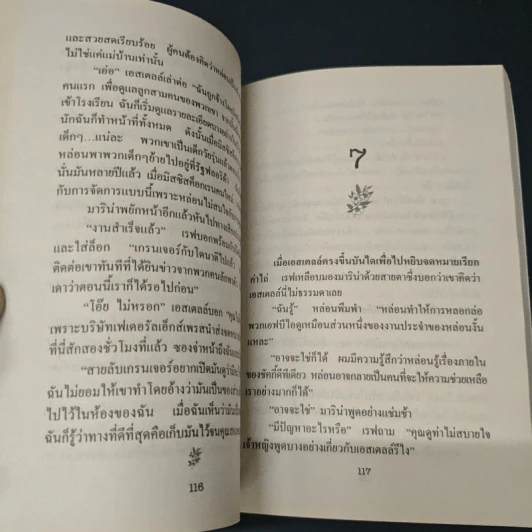 และสวยสดเรียบร้อย ผู้คนต้องคิดว่าหล่อนเป็น
ไม่ใช่แค่แม่บ้านเท่านั้น
"เอ่อ" เอสเตลล์เล่าต่อ "ฉันถูกจ้าง
คนแรก เพื่อดูแลลูกสามคนของพวกเขา
เข้าโรงเรียน ฉันก็เริ่มดูแลรายละเอียด
นักฉันก็ทำหน้าที่ทั้งหมด ดังนั้นเมื่อ
เด็กๆ...แน่ละ พวกเขาเป็นเด็กวัยรุ่นแล้ว
หล่อนพาพวกเด็กๆย้ายไปอยู่ที่รัฐฟลอริด้า
นั่นมันหลายปีแล้ว เมื่อมิสซิสค็อกเรน
กับการจัดการแบบนี้เพราะหล่อนไม่สนใจ
มารีน่าพยักหน้าอีกแล้วหันไปทาง
"งานสำเร็จแล้ว" เรฟบอกพร้อมกับ
และใส่ล็อก "เกรนเจอร์กับไดนาตีไปแล้ว
ติดต่อเขาทันทีที่ได้ยินข่าวจากพวกคนลักพาตัว
เดาว่าตอนนี้เราก็ได้รอไปก่อน"
"โอ๊ย ไม่หรอก" เอสเตลล์บอก
เพราะบริษัทเฟเดอรัลเอ็กส์เพรสนำส่งซอง
ที่นี่สักสองชั่วโมงที่แล้ว ซองจ่าหน้าถึงฉัน
"สายลับเกรนเจอร์อยากเปิดมันดูว่า
ฉันไม่ยอมให้เขาทำโดยอ้างว่ามันเป็นของ
ไปไว้ในห้องของฉัน เมื่อฉันเห็นว่า
ฉันก็รู้ว่าทางที่ดีที่สุดคือเก็บมันไว้จน
116
7
เมื่อเอสเตลล์ตรงขึ้นบันไดเพื่อไปหยิบจดหมายเรียก
ค่าไถ่ เรฟเหลือบมองมารีน่าด้วยสายตาซึ่งบอกว่าเขาคิดว่า
เอสเตลล์นี่ไม่ธรรมดาเลย
"ฉันรู้" หล่อนพึมพำ "หล่อนทำให้การหลอกล่อ
พวกเอฟบีไอดูเหมือนส่วนหนึ่งของงานประจำของหล่อนงั้น
แหละ"
"อาจจะใช่ก็ได้ ผมมีความรู้สึกว่าหล่อนรู้เรื่องภายใน
ของชัคกี้ดีทีเดียว หล่อนอาจกลายเป็นคนที่จะให้ความช่วยเหลือ
เราอย่างมากก็ได้"
"อาจจะใช่" มารีน่าพูดอย่างแช่มช้า
"มีปัญหาอะไรหรือ" เรฟถาม "คุณดูท่าไม่สบายใจ
เจ้าหญิงพูดบางอย่างเกี่ยวกับเอสเตลล์รึไง"
117